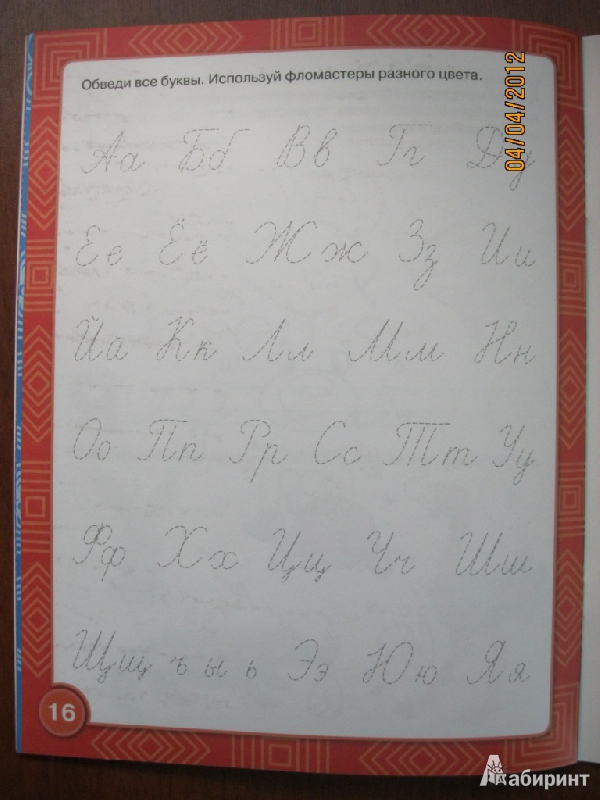 Обведи все буквы. Используй фломастеры разного цвета.
04/04/2012
Аа Бб Вв Гг Ду
Ее Ёё Жж Зз Ии
Йа Кк Лл Мм Нн
Оо Пп Рр Сс Тт Уу
Фф Хх Цц Чч Шш
Щщ ъ ы ь Ээ Юю Яя
16
Лабиринт